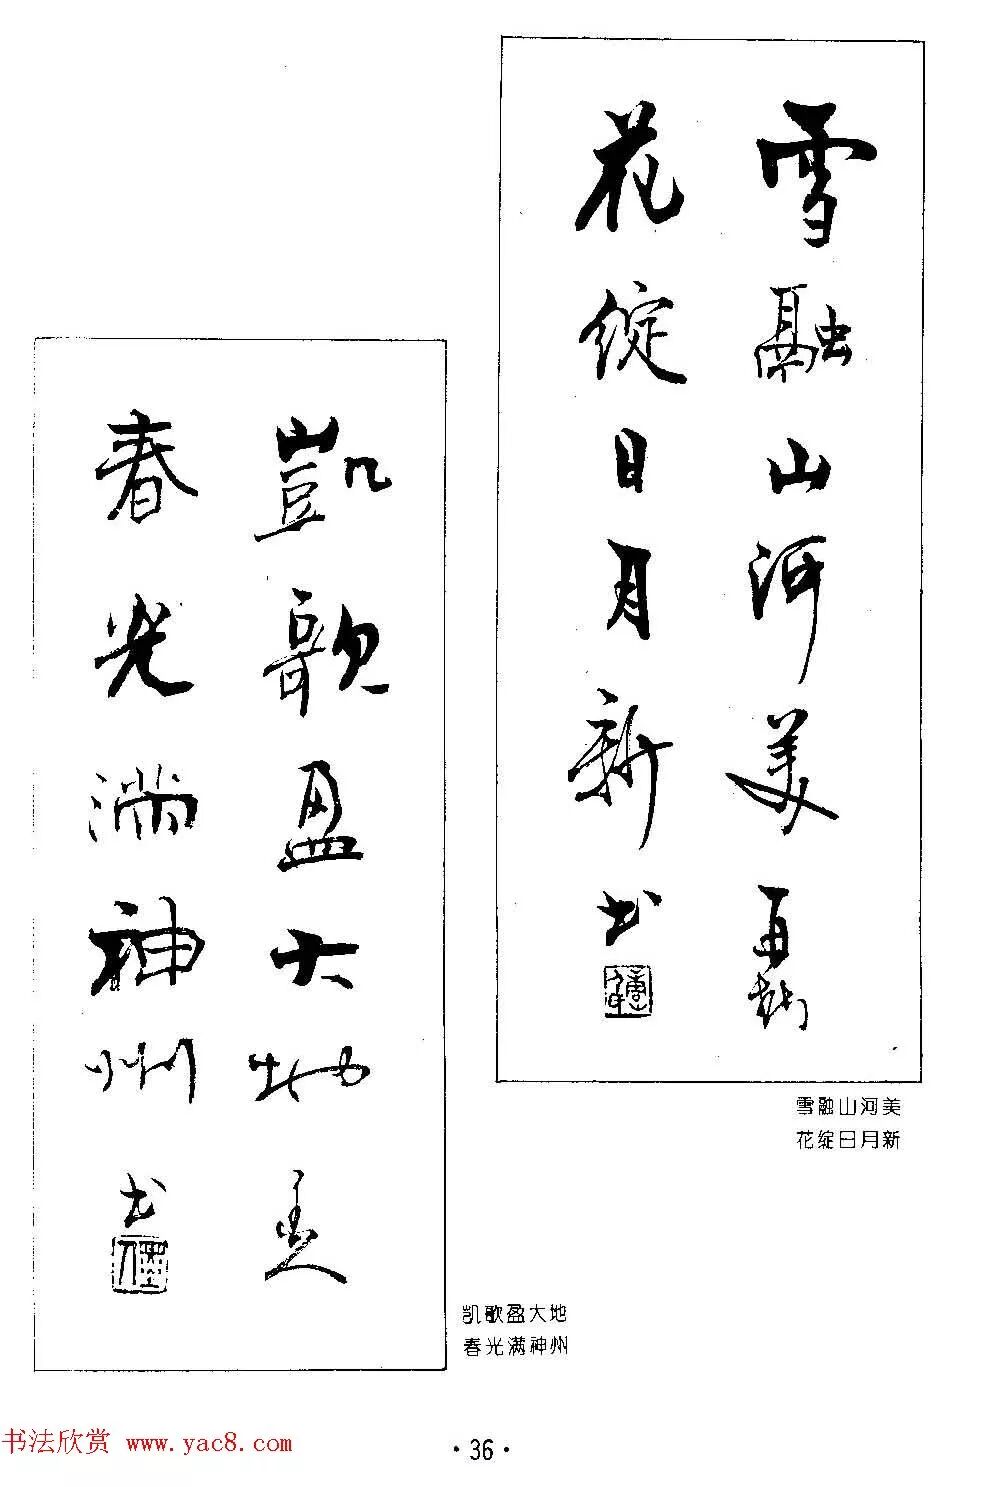 雪融山河美
花绽日月新
书
雪融山河美
花绽日月新
凯歌盈大地
春光满神州
书
凯歌盈大地
春光满神州
书法欣赏 www.yac8.com
·36·